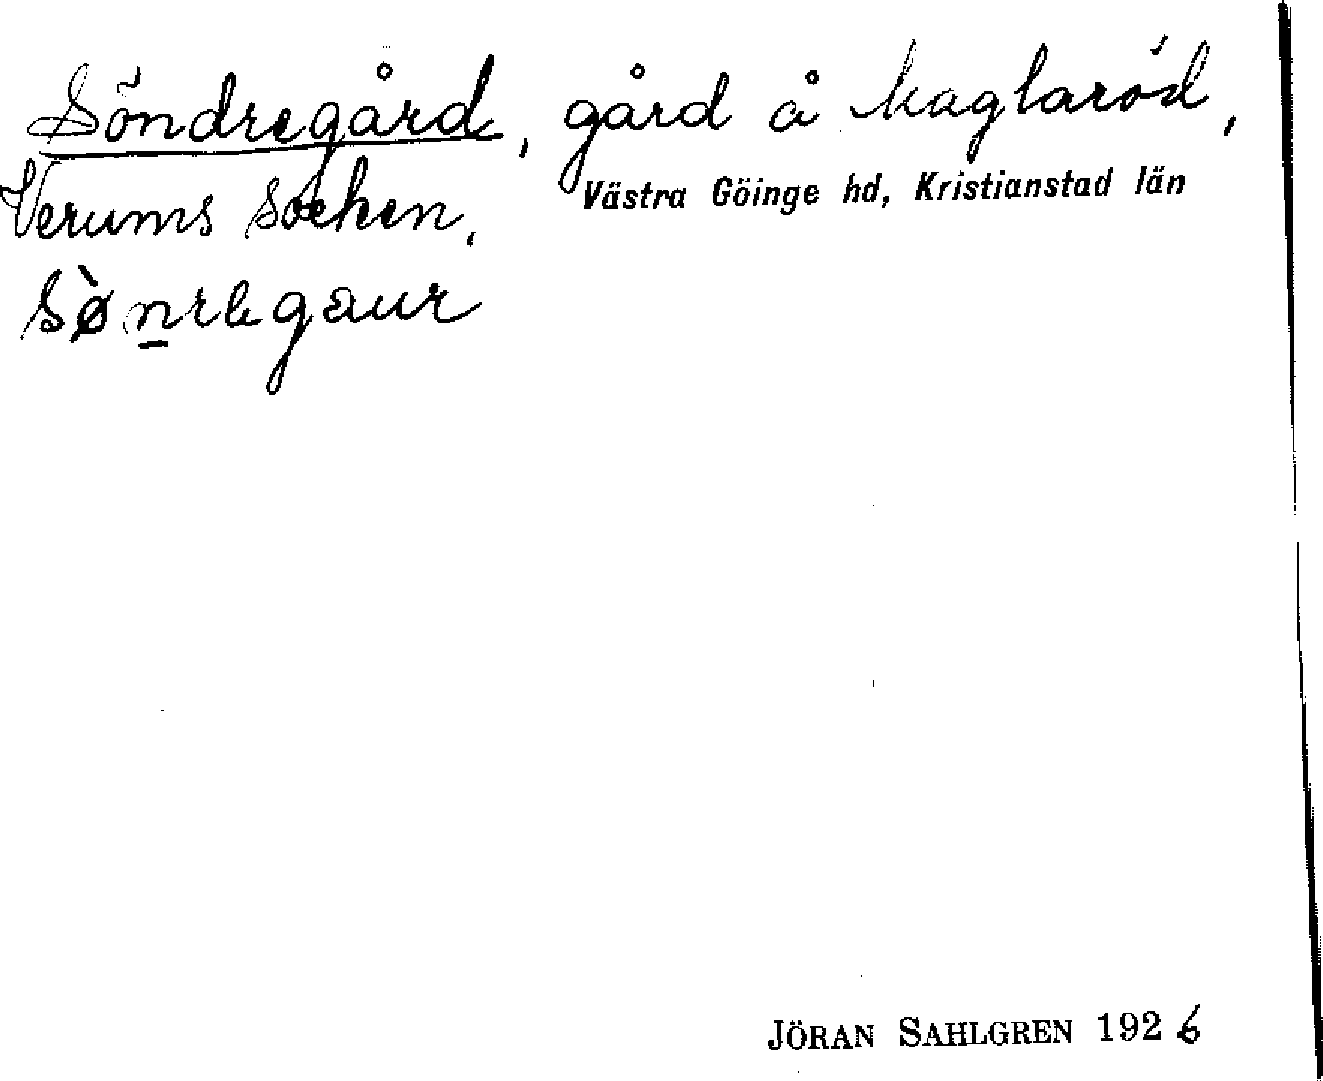 Söndregård, gård å Maglaröd,
Verums socken, Västra Göinge hd, Kristianstad län
JÖRAN SAHLGREN 1926